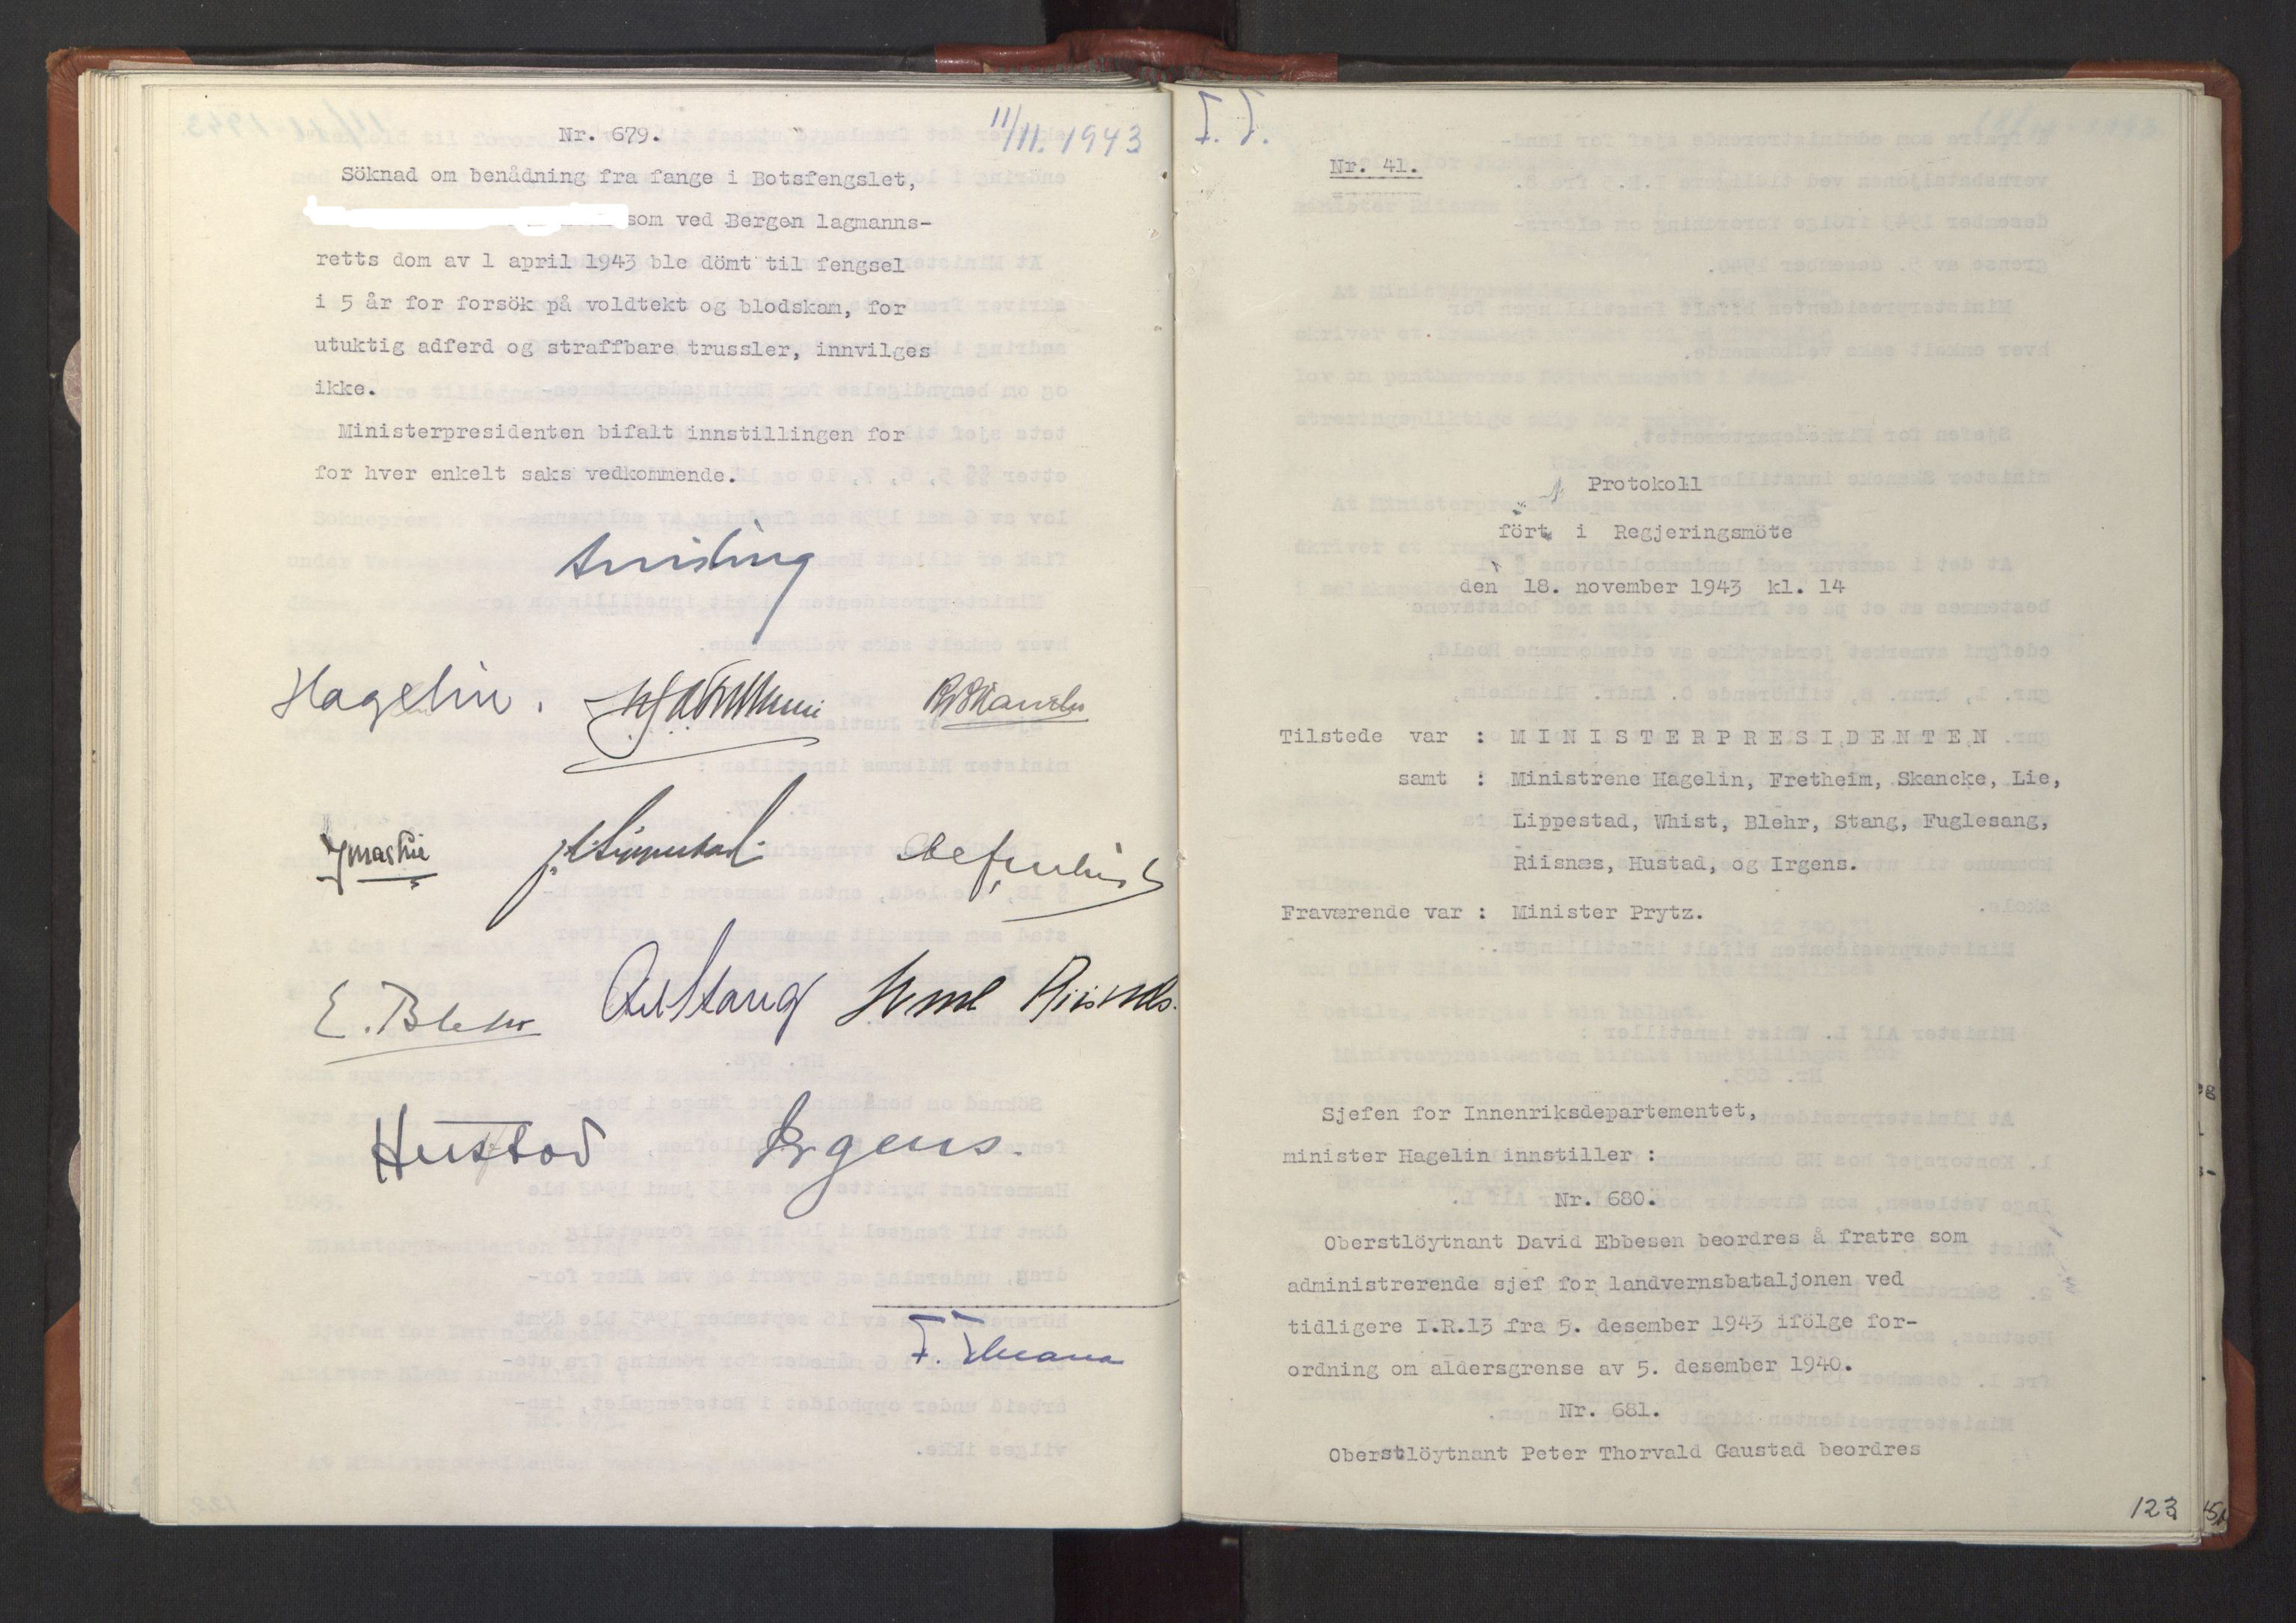 11/11. 1943
Nr. 679.
Söknad om benådning fra fange i Botsfengslet,
som ved Bergen lagmanns-
retts dom av 1 april 1943 ble dömt til fengsel
i 5 år for forsök på voldtekt og blodskam, for
utuktig adferd og straffbare trussler, innvilges
ikke.
Ministerpresidenten bifalt innstillingen for
for hver enkelt saks vedkommende.
Quisling
Hagelin.
RSkancke
Jonas Lie
E. Blehr
Stang
Riisnæs.
Hustad
Irgens.
T. T.
Nr. 41.
Protokoll
fört i Regjeringsmöte
den 18. november 1943 kl. 14
Tilstede var : MINISTERPRESIDENTEN
samt : Ministrene Hagelin, Fretheim, Skancke, Lie,
Lippestad, Whist, Blehr, Stang, Fuglesang,
Riisnæs, Hustad, og Irgens.
Fraværende var : Minister Prytz.
Sjefen for Innenriksdepartementet,
minister Hagelin innstiller :
Nr. 680.
Oberstlöytnant David Ebbesen beordres å fratre som
administrerende sjef for landvernsbataljonen ved
tidligere I.R.13 fra 5. desember 1943 ifölge for-
ordning om aldersgrense av 5. desember 1940.
Nr. 681.
Oberstlöytnant Peter Thorvald Gaustad beordres
123